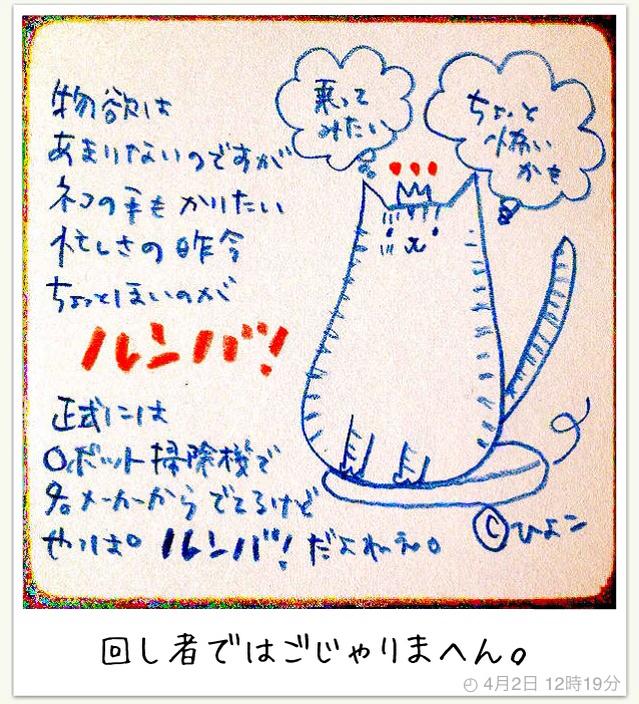 物欲は
あまりないのですが
ネコの手も かりたい
忙しさの昨今
ちょっとほしいのが
ルンバ!
正式には
ロボット掃除機で
各メーカーからでてるけど
やっぱ。ルンバ!だよねぇ。
乗って
みたい
ちょっと
怖い
かも
©ひよこ
回し者ではごじゃりまへん。
4月2日 12時19分